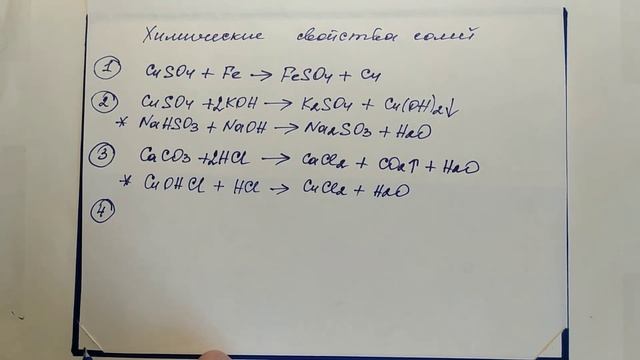 Химические свойства солей
① CuSO4 + Fe → FeSO4 + Cu
② CuSO4 + 2KOH → K2SO4 + Cu(OH)2↓
* NaHSO3 + NaOH → Na2SO3 + H2O
③ CaCO3 + 2HCl → CaCl2 + CO2↑ + H2O
* CuOHCl + HCl → CuCl2 + H2O
④